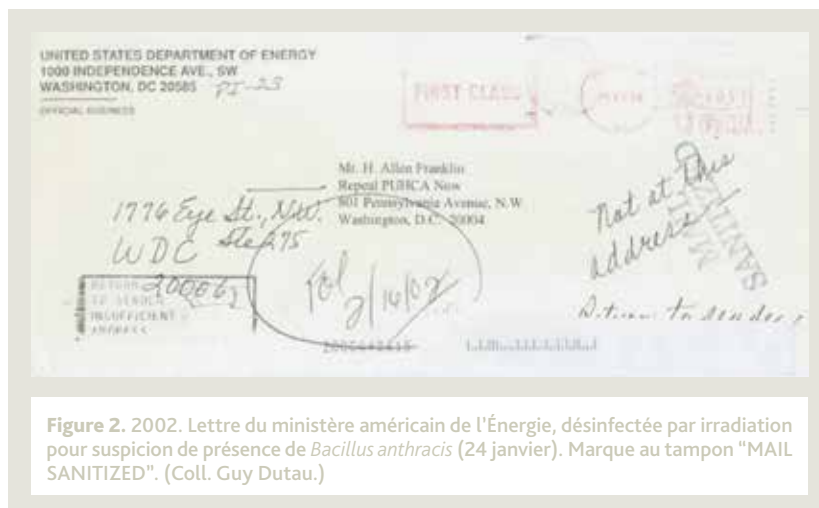 UNITED STATES DEPARTMENT OF ENERGY
1000 INDEPENDENCE AVE., SW
WASHINGTON, DC 20585
PI-23
OFFICIAL BUSINESS
FIRST CLASS
Mr. H. Allen Franklin
Repeal PUHCA Now
801 Pennsylvania Avenue, N.W.
Washington, D.C. 20004
1776 Eye St., NW.
Ste 275
WDC
20006
RETURN
TO SENDER
INSUFFICIENT
ADDRESS
2/16/02
Not at this
address
MAIL
SANITIZED
Return to sender
Figure 2. 2002. Lettre du ministère américain de l'Énergie, désinfectée par irradiation
pour suspicion de présence de Bacillus anthracis (24 janvier). Marque au tampon “MAIL
SANITIZED”. (Coll. Guy Dutau.)